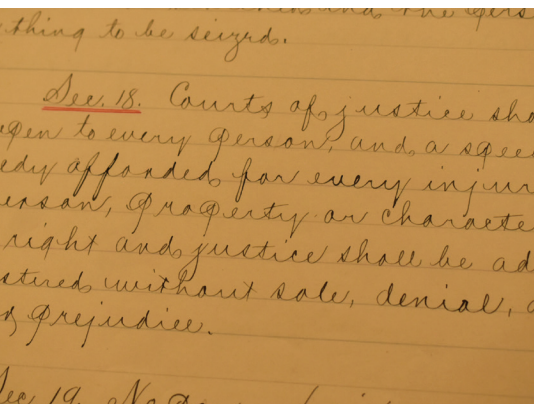 thing to be seizrd.
Sec. 18. Courts of justice sho
open to every person, and a spee
edy afforded for every injur
erson, property or characte
right and justice shall be ad
stered without sale, denial,
prejudice.
Sec 19. No